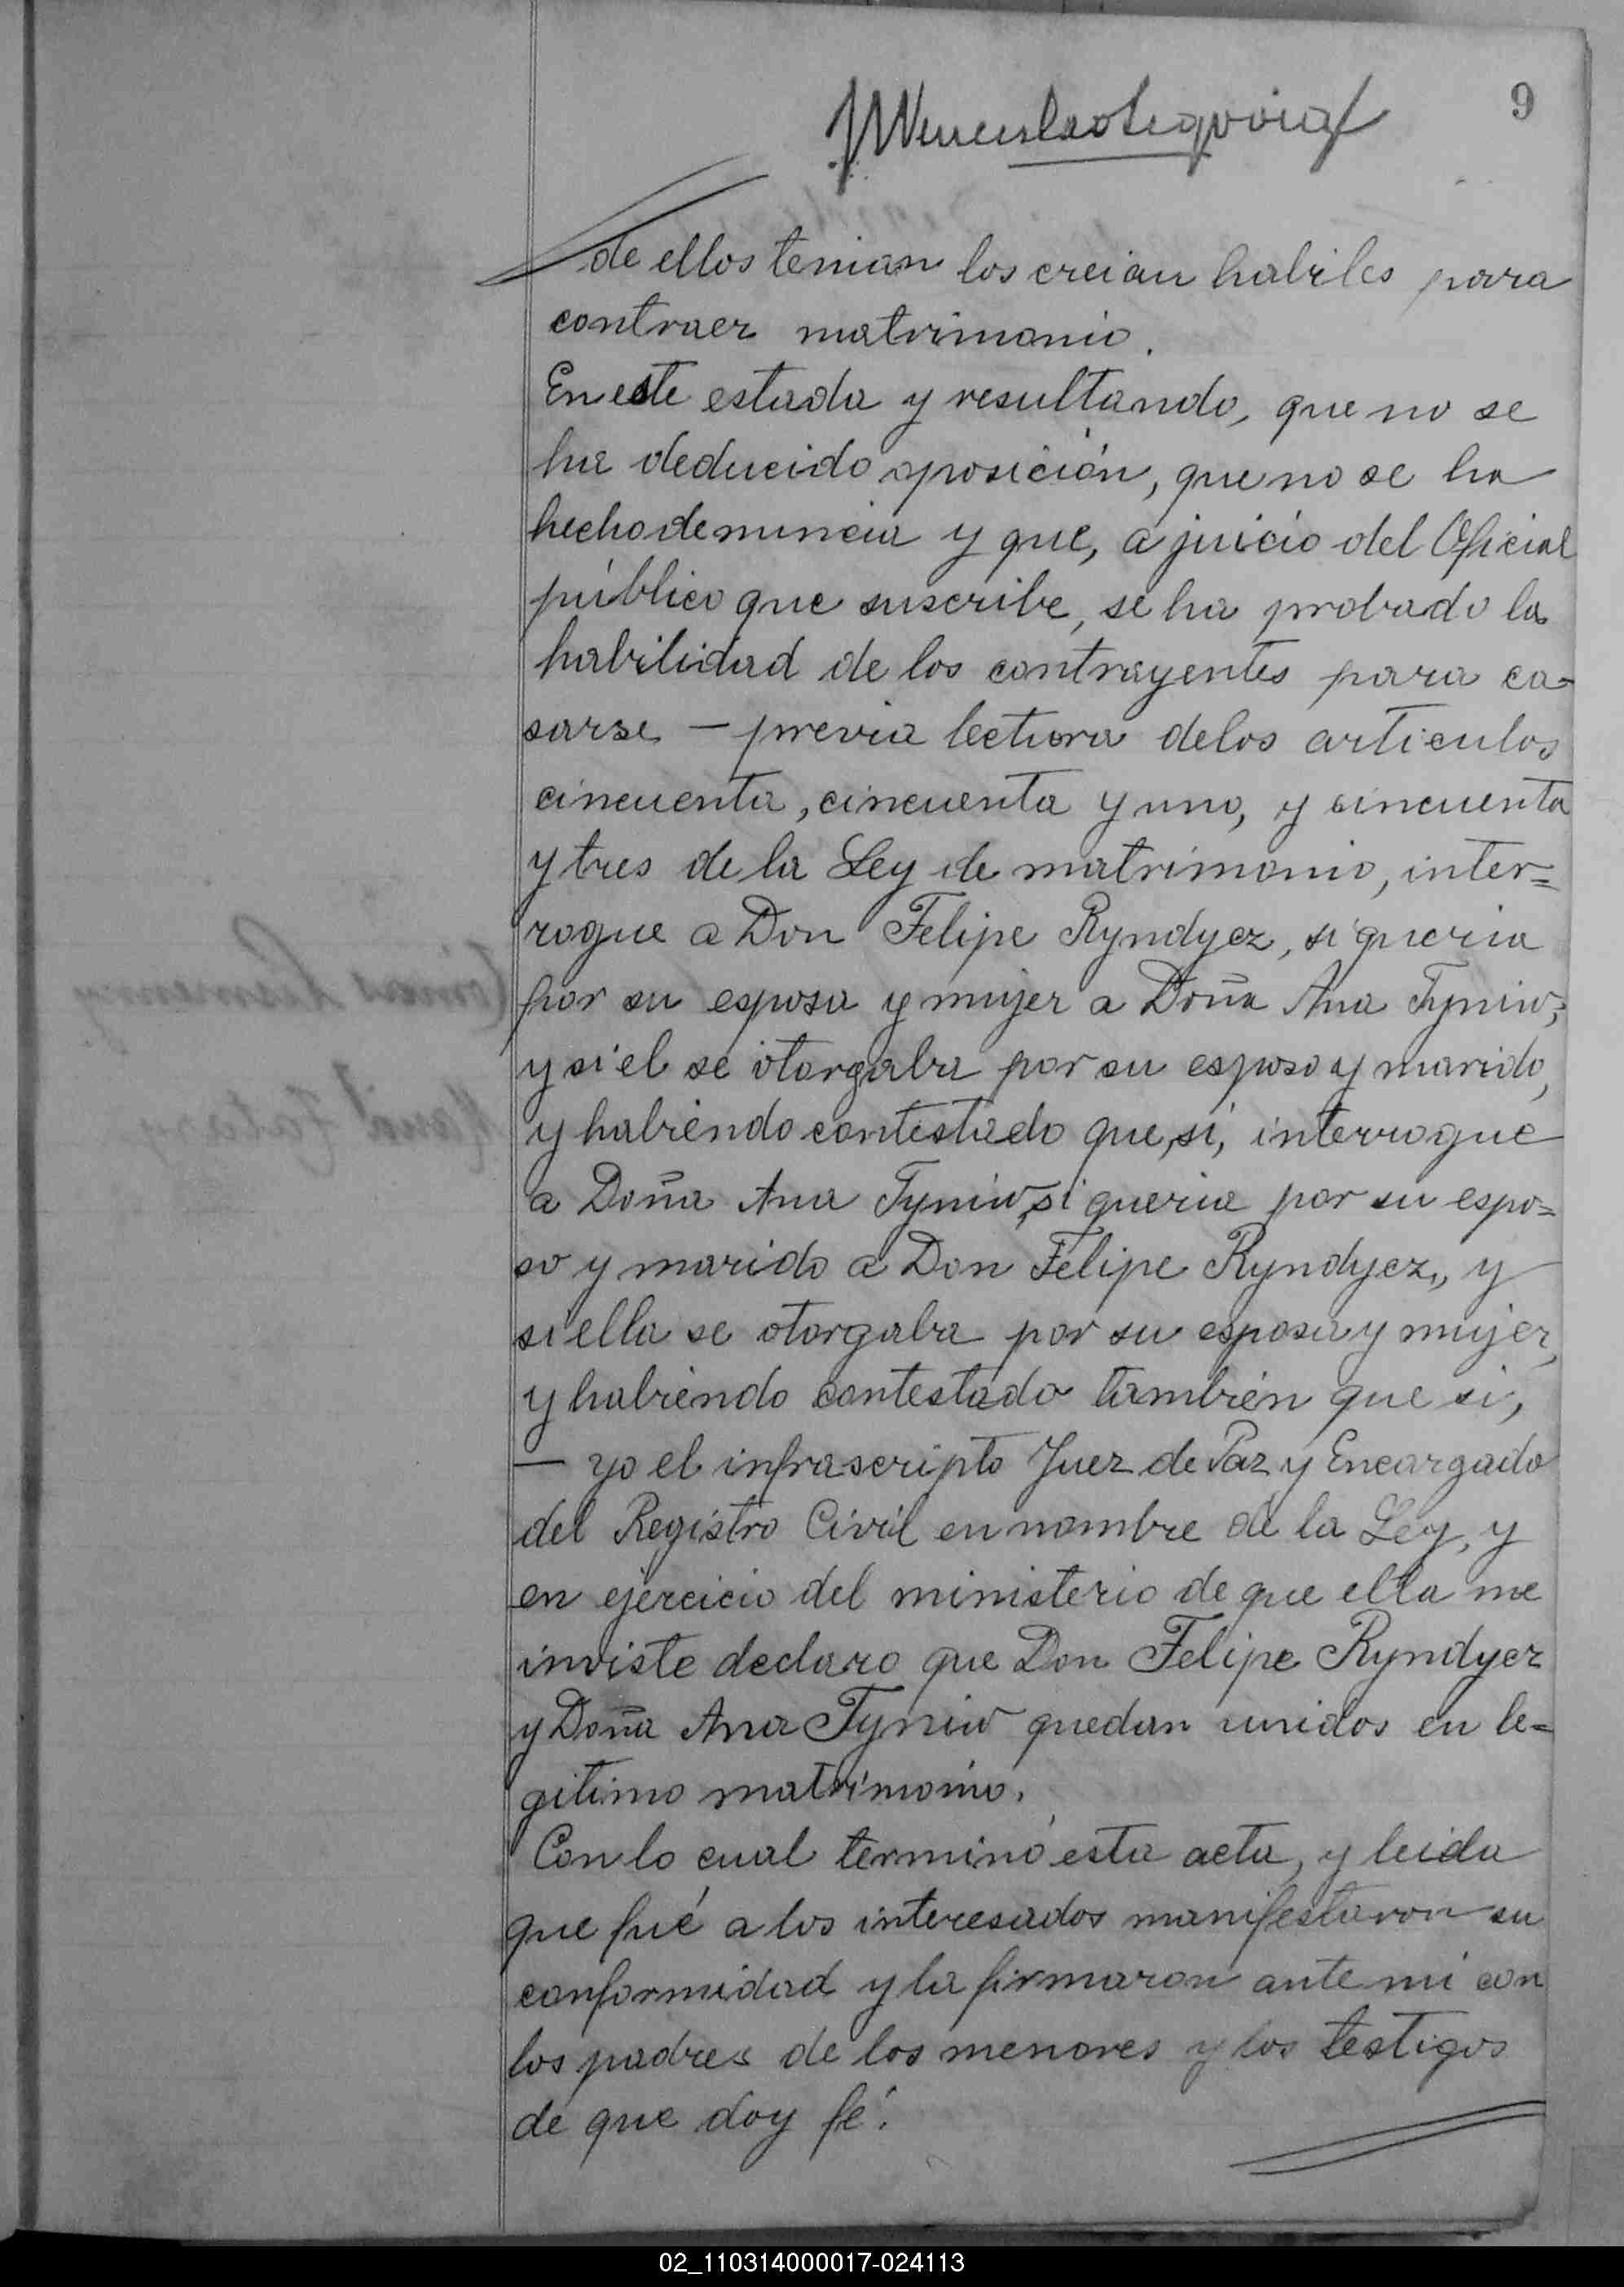 9
de ellos tenian los creian habiles para
contraer matrimonio.
En este estado y resultando, que no se
ha deducido oposición, que no se ha
hecho denuncia y que, a juicio del Oficial
público que suscribe, se ha probado la
habilidad de los contrayentes para ca-
sarse – previa lectura de los articulos
cincuenta, cincuenta y uno, y cincuenta
y tres de la Ley de matrimonio, inter=
rogue a Don Felipe Ryndycz, si queria
por su esposa y mujer a Doña Ana Tyniw,
y si el se otorgaba por su esposo y marido,
y habiendo contestado que, si, interrogué
a Doña Ana Tyniw, si queria por su espo=
so y marido a Don Felipe Ryndycz, y
si ella se otorgaba por su esposa y mujer,
y habiendo contestado también que si,
– yo el infrascripto Juez de Paz y Encargado
del Registro Civil en nombre de la Ley, y
en ejercicio del ministerio de que ella me
inviste declaro que Don Felipe Ryndycz
y Doña Ana Tyniw quedan unidos en le=
gitimo matrimonio.
Con lo cual terminó esta acta, y leida
que fué a los interesados manifestaron su
conformidad y la firmaron ante mi con
los padres de los menores y los testigos
de que doy fé.
02_110314000017-024113